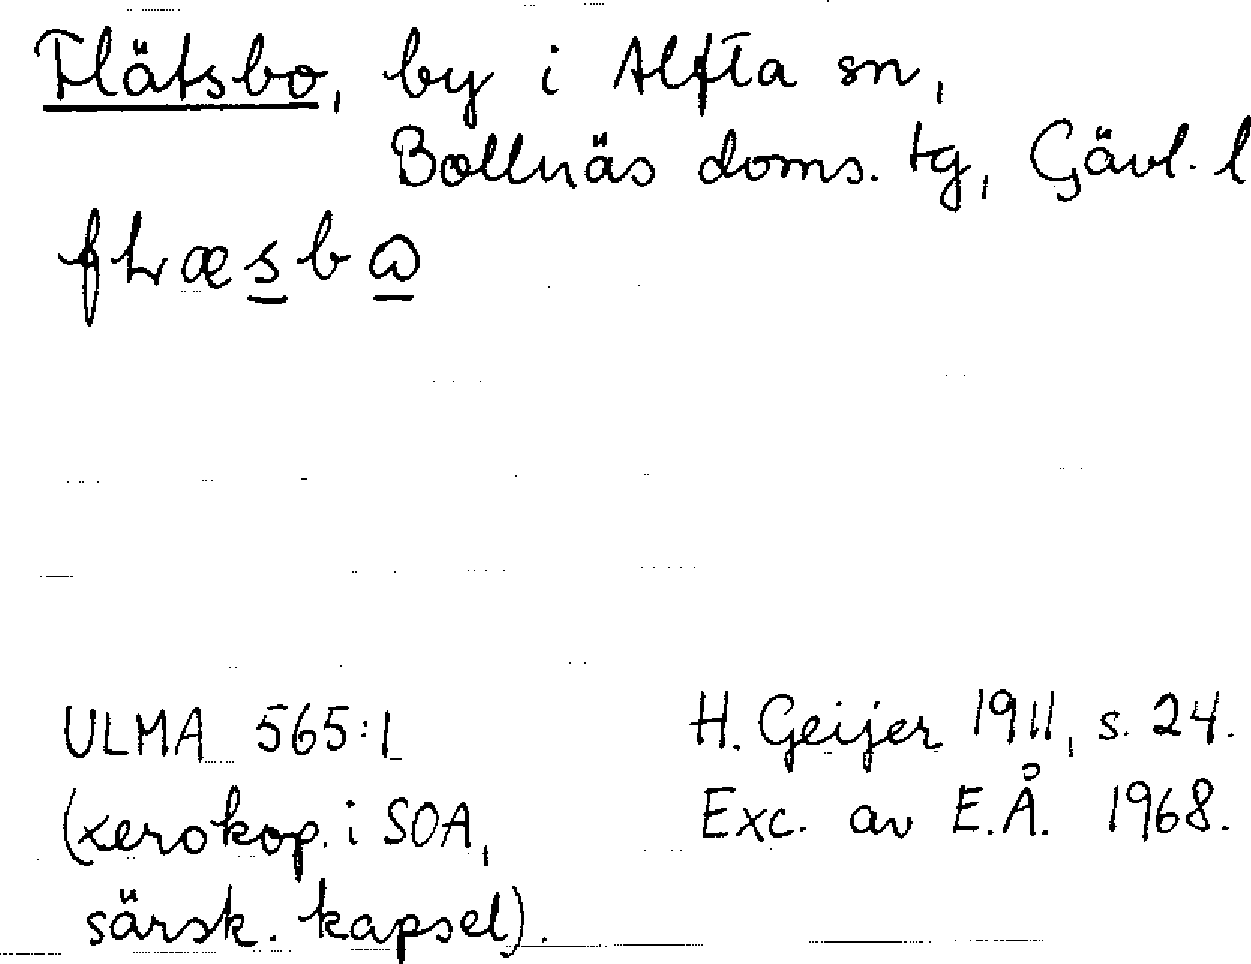 Flätsbo, by i Alfta sn,
Bollnäs doms. tg, Gävl. l
ULMA 565:1
H. Geijer 1911, s. 24.
(xerokop. i SOA,
Exc. av E.Å. 1968.
särsk. kapsel).